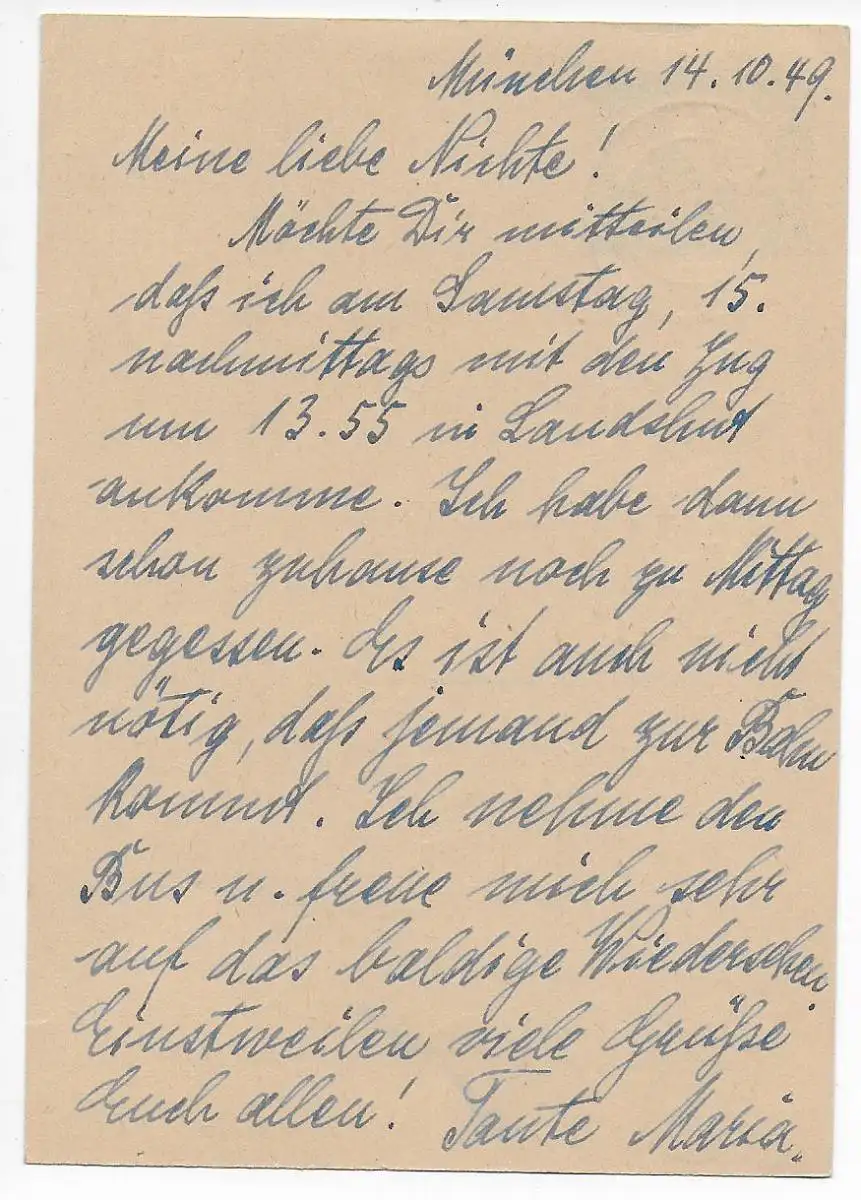 München 14.10.49.
Meine liebe Nichte!
Möchte Dir mitteilen,
daß ich am Samstag, 15.
nachmittags mit den Zug
um 13.55 in Landshut
ankomme. Ich habe dann
schon zuhause noch zu Mittag
gegessen. Es ist auch nicht
nötig, daß jemand zur Bahn
kommt. Ich nehme den
Bus u. freue mich sehr
auf das baldige Wiedersehen.
Einstweilen viele Grüße
Euch allen! Tante Maria.